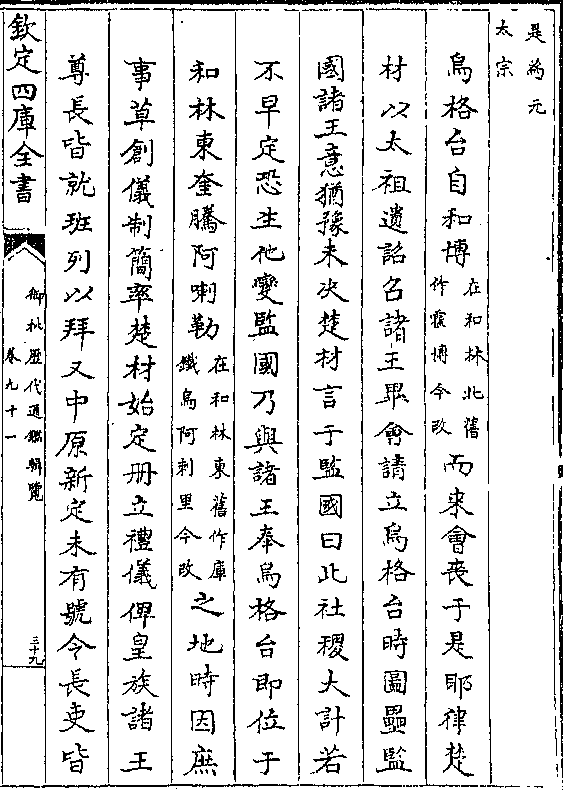 是為元
太宗
烏格台自和博在和林北舊作霍博今改而來會喪于是耶律楚
材以太祖遺詔召諸王畢會請立烏格台時圖壘監
國諸王意猶豫未决楚材言于監國曰此社稷大計若
不早定恐生他變監國乃與諸王奉烏格台即位于
和林東奎騰阿喇勒在和林東舊作庫鐵烏阿剌里今改之地時因庶
事草創儀制簡率楚材始定册立禮儀俾皇族諸王
尊長皆就班列以拜又中原新定未有號令長吏皆
欽定四庫全書
御批歷代通鑑輯覽
卷九十一
三十九